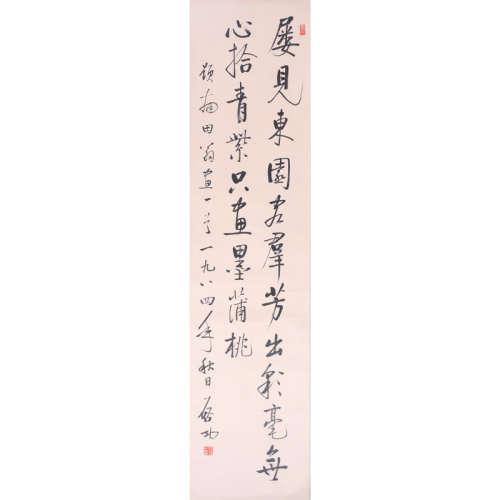 屢見東園羣芳出彩毫無
心拾青紫只畫墨蒲桃
題南田翁畫一首一九八四年秋日启功